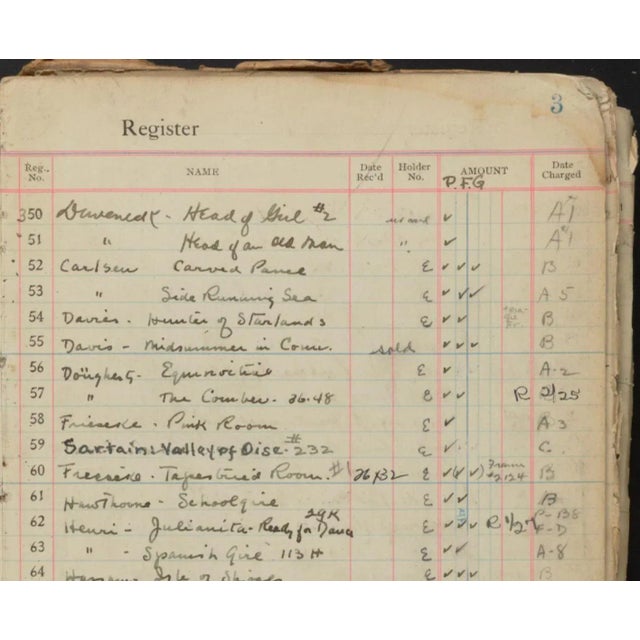 3
Register
Reg. No. NAME Date Rec'd Holder No. AMOUNT Date Charged
P. F. G
350 Duveneck - Head of Girl #2 ✓ A1
51 " Head of an Old Man " ✓ A1
52 Carlsen Carved Panel E ✓ ✓ ✓ B
53 " Side Running Sea E ✓ ✓ ✓ A 5
54 Davies - Hunter of Starlands E ✓ ✓ B
55 Davis - Midsummer in Conn. sold ✓ ✓ ✓ B
56 Dougherty - E ✓ A-2
57 " The Comber - 36.48 E ✓ ✓ R 2/25
58 Frieseke - Pink Room E ✓ A 3
59 Sartain: Valley of Dise. #232 E ✓ C.
60 Frieseke - Tapestried Room. #1 36x32 E ✓ (✓ ✓) Frame #2124 B
61 Hawthorne - Schoolgirl E ✓ ✓ B
62 Henri - Julianita - Ready for Dance E ✓ ✓ ✓ R 1/27 F-D
63 " - Spanish Girl 113 H E ✓ ✓ A-8
64 Hassam - Isle of Shoals E ✓ ✓ ✓ B